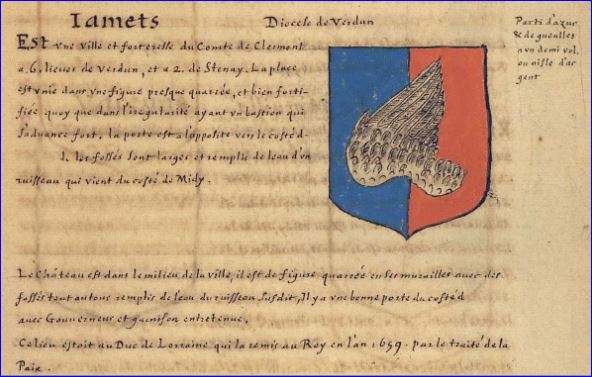 Iamets
Diocése de Verdun
Est vne ville et forteresse du Comte de Clermont
a .6. lieues de Verdun, et a 2. de Stenay. La place
est vnie dans vne figure presque quarrée, et bien forti-
fiée quoy que dans l'irregularité ayant vn bastion qui
s'aduance fort, la porte est a l'opposite vers le costé d
les fossés sont larges et remplis de l'eau d'vn
ruisseau qui vient du costé de Midy.
Parti d'azur
& de gueulles
a vn demi vol,
ou aisle d'ar
gent
Le Château est dans le milieu de la ville, il est de figure quarrée en ses murailles avec des
fossés tout autour remplis de l'eau du ruisseau susdit, Il y a vne bonne porte du costé d
avec Gouverneur et garnison entretenue.
Ce lieu estoit au Duc de Lorraine qui l'a remis au Roy en l'an 1659. par le traité de la
Paix.